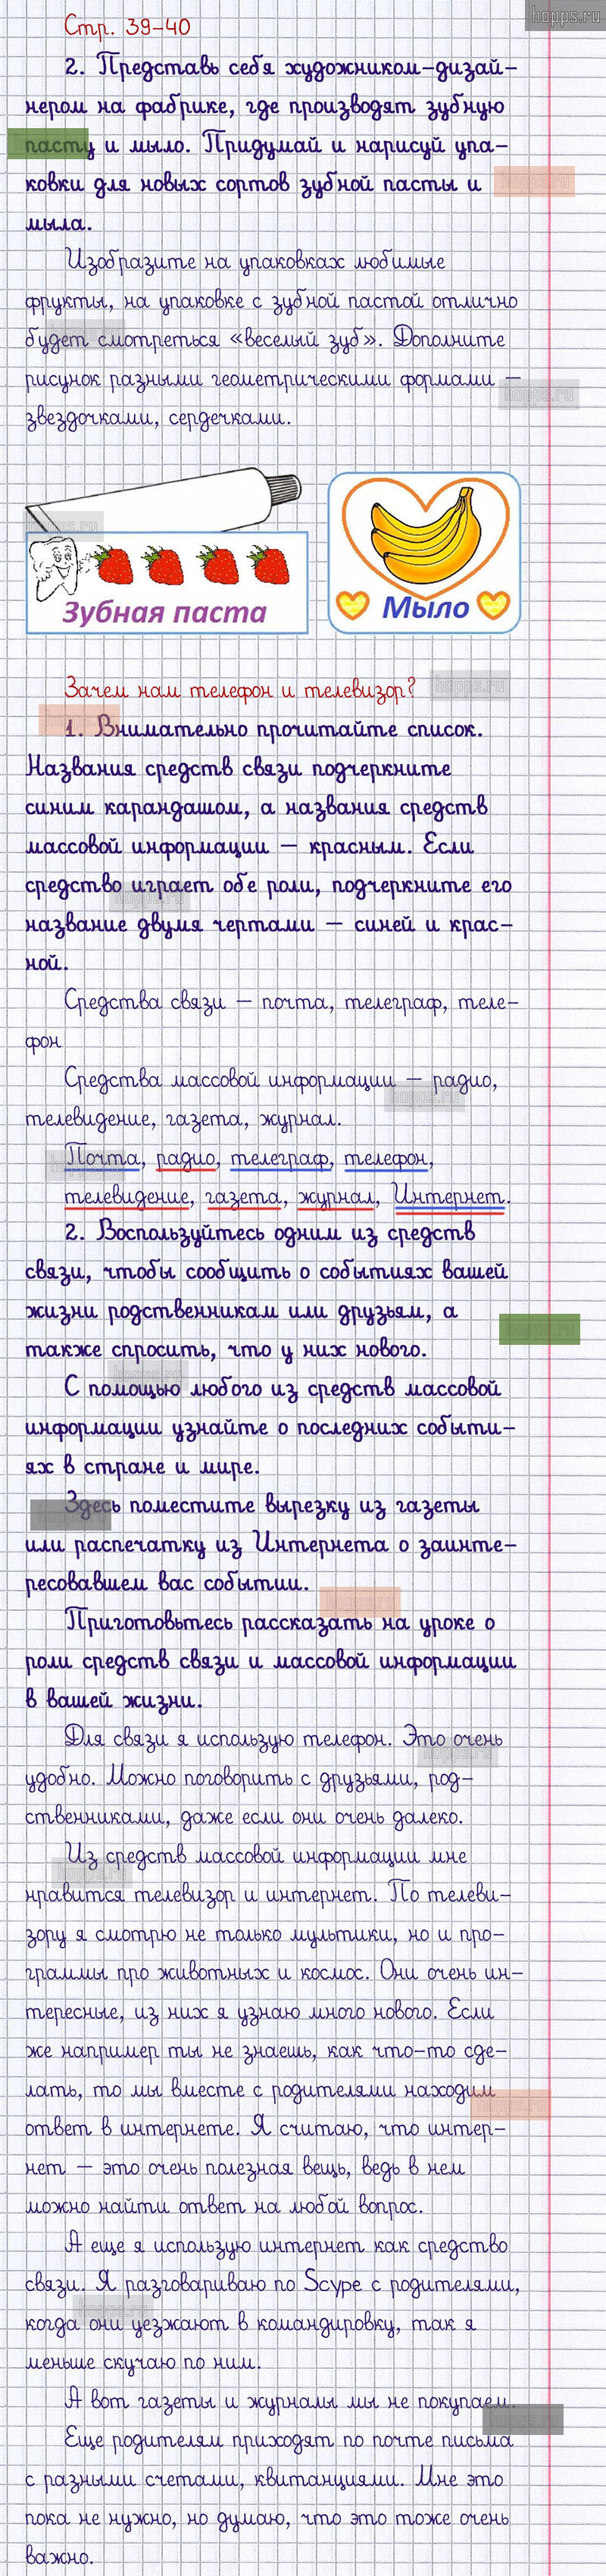 hopps.ru
Стр. 39-40
2. Представь себя художником-дизай-
нером на фабрике, где производят зубную
пасту и мыло. Придумай и нарисуй упа-
ковки для новых сортов зубной пасты и
мыла.
Изобразите на упаковках любимые
фрукты, на упаковке с зубной пастой отлично
будет смотреться «веселый зуб». Дополните
рисунок разными геометрическими формами –
звездочками, сердечками.
Зубная паста
Мыло
Зачем нам телефон и телевизор?
1. Внимательно прочитайте список.
Названия средств связи подчеркните
синим карандашом, а названия средств
массовой информации – красным. Если
средство играет обе роли, подчеркните его
название двумя чертами – синей и крас-
ной.
Средства связи – почта, телеграф, теле-
фон
Средства массовой информации – радио,
телевидение, газета, журнал.
Почта, радио, телеграф, телефон,
телевидение, газета, журнал, Интернет.
2. Воспользуйтесь одним из средств
связи, чтобы сообщить о событиях вашей
жизни родственникам или друзьям, а
также спросить, что у них нового.
С помощью любого из средств массовой
информации узнайте о последних событи-
ях в стране и мире.
Здесь поместите вырезку из газеты
или распечатку из Интернета о заинте-
ресовавшем вас событии.
Приготовьтесь рассказать на уроке о
роли средств связи и массовой информации
в вашей жизни.
Для связи я использую телефон. Это очень
удобно. Можно поговорить с друзьями, род-
ственниками, даже если они очень далеко.
Из средств массовой информации мне
нравится телевизор и интернет. По телеви-
зору я смотрю не только мультики, но и про-
граммы про животных и космос. Они очень ин-
тересные, из них я узнаю много нового. Если
же например ты не знаешь, как что-то сде-
лать, то мы вместе с родителями находим
ответ в интернете. Я считаю, что интер-
нет – это очень полезная вещь, ведь в нем
можно найти ответ на любой вопрос.
А еще я использую интернет как средство
связи. Я разговариваю по Scype с родителями,
когда они уезжают в командировку, так я
меньше скучаю по ним.
А вот газеты и журналы мы не покупаем.
Еще родителям приходят по почте письма
с разными счетами, квитанциями. Мне это
пока не нужно, но думаю, что это тоже очень
важно.